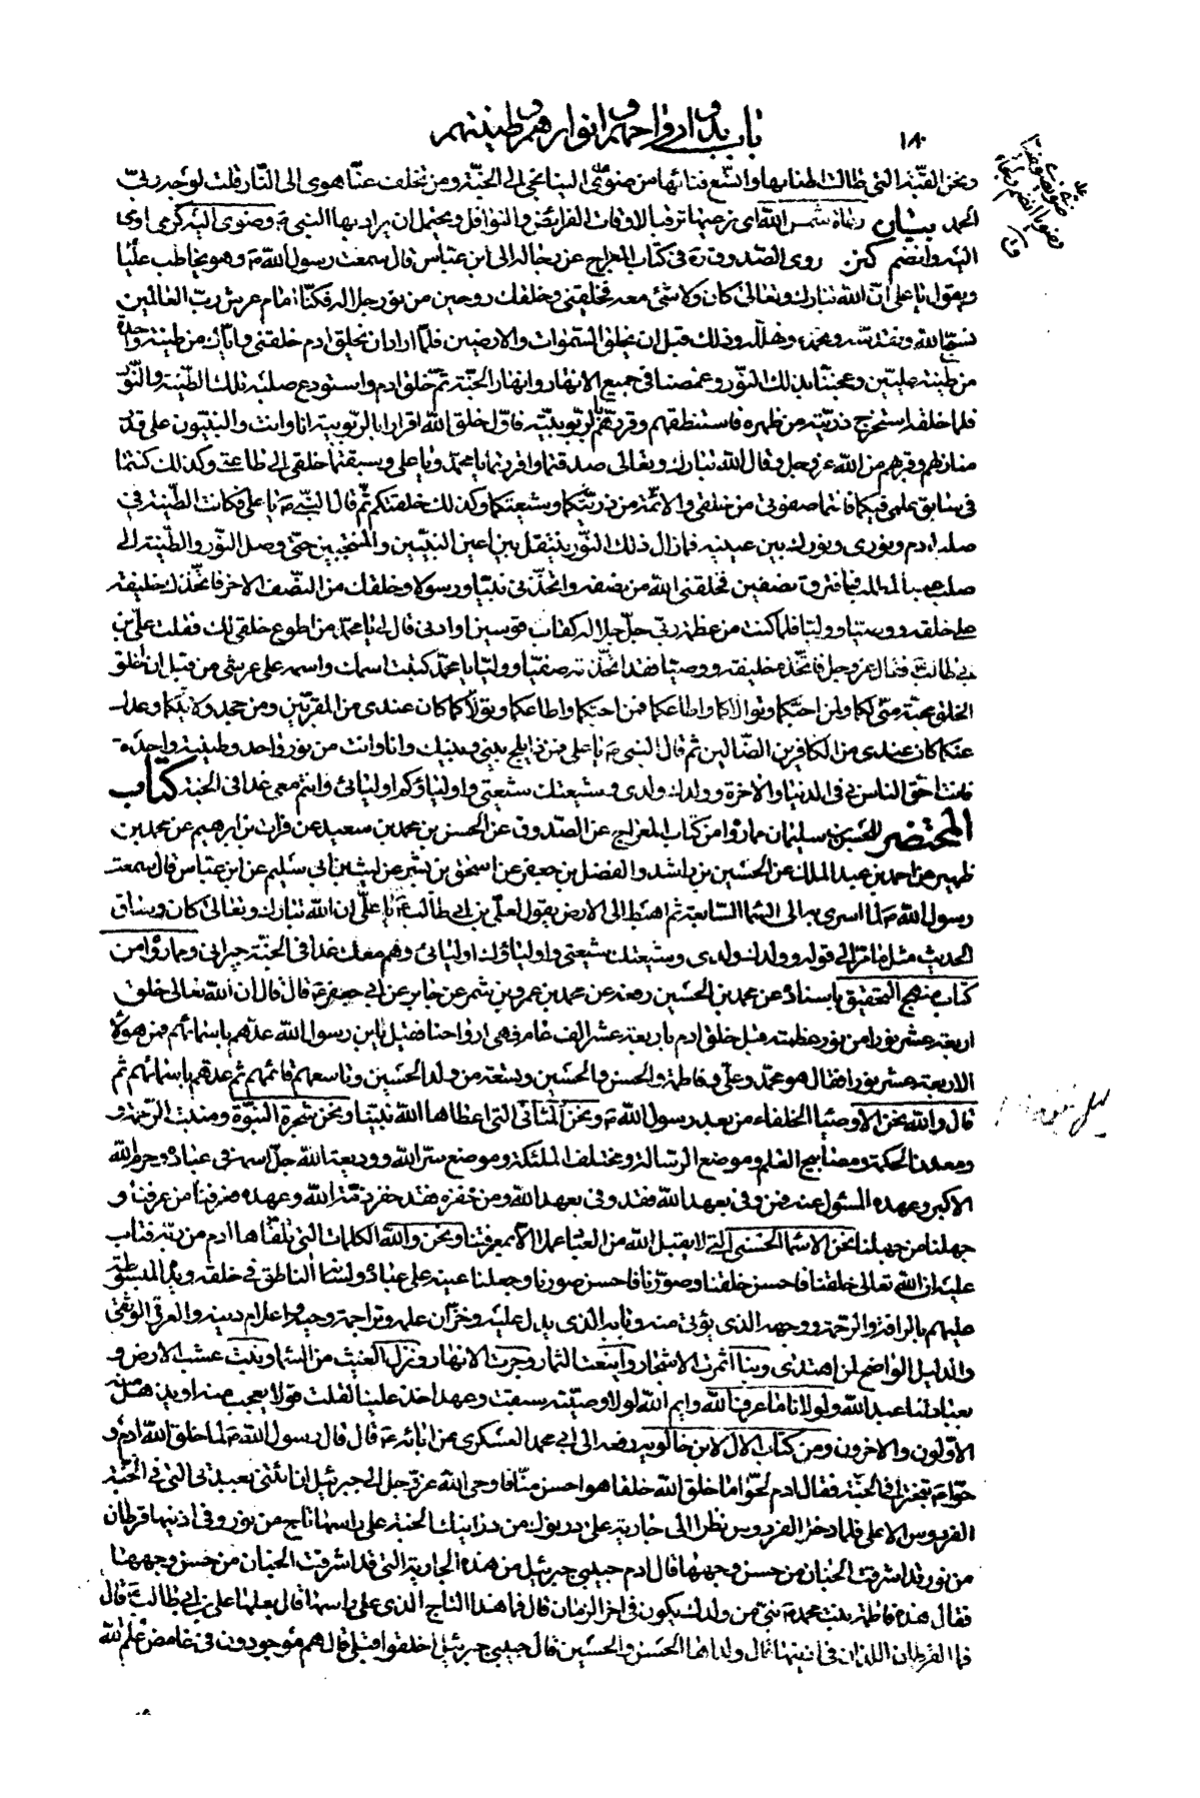 باب بدو ارواحهم و انوارهم و طينتهم
١٨٠
ونحن القبّة التى طالت اطنابها واتّسع فنائها من ضوى الينا نجى الى الجنّة ومن تخلف عنّا هوى الى النّار قلت لوجه ربّى
الحمد بيان رعاة شمس اللّه اى نرعيها ترقبا لاوقات الفرائض والنوافل ويحتمل ان يراد بها النبى ص وضوى اليه كرمى اوى
اليه وانضم كنز روى الصّدوق ره فى كتاب المعراج عن رجاله الى ابن عبّاس قال سمعت رسول اللّه ص وهو يخاطب عليّا
ويقول يا على انّ اللّه تبارك وتعالى كان ولا شئ معه فخلقنى وخلقك روحين من نور جلاله فكنّا امام عرش ربّ العالمين
نسبّح اللّه ونقدّسه ونحمده ونهلّله وذلك قبل ان يخلق السّموات والارضين فلمّا اراد ان يخلق ادم خلقنى وايّاك من طينة واحدة
من طينة عليّين وعجننا بذلك النّور وغمسنا فى جميع الانهار وانهار الجنّة ثمّ خلق ادم واستودع صلبه تلك الطّينة والنّور
فلما خلقه استخرج ذرّيّته من ظهره فاستنطقهم وقرّرهم بالربوبيّة فاوّل خلق اللّه اقرارا بالربوبية انا وانت والنبّيون على قدر
منازلهم وقربهم من اللّه عز وجل فقال اللّه تبارك وتعالى صدقتما واقررتما يا محمّد ويا على وسبقتما خلقى الى طاعتى وكذلك كنتما
فى سابق علمى فيكما فانتما صفوتى من خلقى والائمّة من ذرّيتكما وشيعتكما وكذلك خلقتكم ثمّ قال النّبى ص يا على فكانت الطّينة فى
صلب ادم ونورى ونورك بين عينيه فمازال ذلك النّور ينتقل بين اعين النبيّين والمنتجبين حتّى وصل النّور والطّينة الى
صلب عبدالمطّلب فافترق نصفين فخلقنى اللّه من نصفه واتخذنى نبيّا ورسولا وخلقك من النّصف الاخر فاتّخذك خليفة
على خلقه ووصيّا ووليّا فلما كنت من عظمة ربّى جلّ جلاله كقاب قوسين او ادنى قال لى يا محمّد من اطوع خلقى لك فقلت علىّ بن
ابى طالب فقال عز وجل فاتّخذه خليفة ووصيّا فقد اتّخذته صفيّا ووليّا يا محمّد كتبت اسمك واسمه على عرشى من قبل ان اخلق
الخلق محبّة منّى لكما ولمن احبّكما وتوالاكما واطاعكما فمن احبّكما واطاعكما وتولاّكما كان عندى من المقرّبين ومن جحد ولايتكما وعدل
عنكما كان عندى من الكافرين الضّالين ثم قال النبى ص يا على فمن ذا يلج بينى وبينك وانا وانت من نور واحد وطينة واحدة
فانت احق الناس بى فى الدنيا والاخرة وولدك ولدى وشيعتك شيعتى واولياؤكم اوليائى وانتم معى غدا فى الجنة كتاب
المحتضر للحسن بن سليمان ممّا رواه من كتاب المعراج عن الصّدوق عن الحسن بن محمد بن سعيد عن فرات بن ابرهيم عن محمد بن
ظهير عن احمد بن عبد الملك عن الحسين بن راشد والفضل بن جعفر عن اسحق بن بشر عن ليث بن ابى سليم عن ابن عبّاس قال سمعت
رسول اللّه ص لما اسرى به الى السّما السّابعة ثم اهبط الى الارض يقول لعلىّ بن ابى طالب ع يا علىّ ان اللّه تبارك وتعالى كان وساق
الحديث مثل ما مرّ الى قوله وولدك ولدى وشيعتك شيعتى واولياؤك اوليائى وهم معك غدا فى الجنّة جيرانى وممّا رواه من
كتاب منهج التحقيق باسناده عن محمد بن الحسين رفعه عن عمرو بن شمر عن جابر عن ابى جعفر ع قال قال ان اللّه تعالى خلق
اربعة عشر نورا من نور عظمته قبل خلق ادم باربعة عشر الف عام فهى ارواحنا فقيل يا بن رسول اللّه عدّهم باسمائهم فمن هؤلا
الاربعة عشر نورا فقال هو محمّد وعلىّ وفاطمة والحسن والحسين وتسعة من ولد الحسين وتاسعهم قائمهم ثم عدهم باسمائهم ثم
قال واللّه نحن الاوصيا الخلفاء من بعد رسول اللّه ص ونحن المثانى التى اعطاها اللّه نبيّنا ونحن شجرة النبوّة ومنبت الرّحمة و
ومعدن الحكمة ومصابيح العلم وموضع الرّسالة ومختلف الملئكة وموضع سرّ اللّه ووديعة اللّه جلّ اسمه فى عباده وحرم اللّه
الاكبر وعهده المسئول عنه فمن وفى بعهد اللّه فقد وفى بعهد اللّه ومن خفره فقد خفر ذمّة اللّه وعهده عرفنا من عرفنا و
جهلنا من جهلنا نحن الاسما الحسنى التى لا يقبل اللّه من العباد عملا الاّ بمعرفتنا ونحن واللّه الكلمات التى تلقّاها ادم من ربّه فتاب
عليه ان اللّه تعالى خلقنا فاحسن خلقنا وصوّرنا فاحسن صورنا وجعلنا عينه على عباده ولسانه النّاطق فى خلقه ويده المبسوطة
عليهم بالرافة والرحمة ووجهه الذى يؤتى منه وبابه الذى يدل عليه وخزّان علمه وتراجمة وحيه واعلام دينه والعروة الوثقى
والدليل الواضح لمن اهتدى وبنا اثمرت الاشجار واينعت الثمار وجرت الانهار ونزل الغيث من السّما ونبت عشب الارض و
بعبادتنا عبد اللّه ولولانا ما عرف اللّه وايم اللّه لولا وصيّة سبقت وعهد اخذ علينا لقلت قولا يعجب منه او يذهل منه
الاوّلون والاخرون ومن كتاب الال لابن خالويه رفعه الى ابى محمد العسكرى عن ابائه ع قال قال رسول اللّه ص لما خلق اللّه ادم و
حوّا ع تبخترا فى الجنّة فقال ادم لحوّا ما خلق اللّه خلقا هو احسن منّا فاوحى اللّه عز وجل الى جبرئيل ان ائتنى بعبدتى التى فى الجنّة
الفردوس الاعلى فلما دخلا الفردوس نظرا الى جارية على درنوك من درانيك الجنة على راسها تاج من نور وفى اذنيها قرطان
من نور قد اشرقت الجنان من حسن وجهها قال ادم حبيبى جبرئيل من هذه الجارية التى قد اشرقت الجنان من حسن وجهها
فقال هذه فاطمة بنت محمد ص نبىّ من ولدك يكون فى اخر الزمان قال فما هذا التاج الذى على راسها قال بعلها على بن ابى طالب ع قال
فما القرطان اللذان فى اذنيها قال ولداها الحسن والحسين قال حبيبى جبرئيل اخلقوا قبلى قال هم موجودون فى غامض علم اللّه